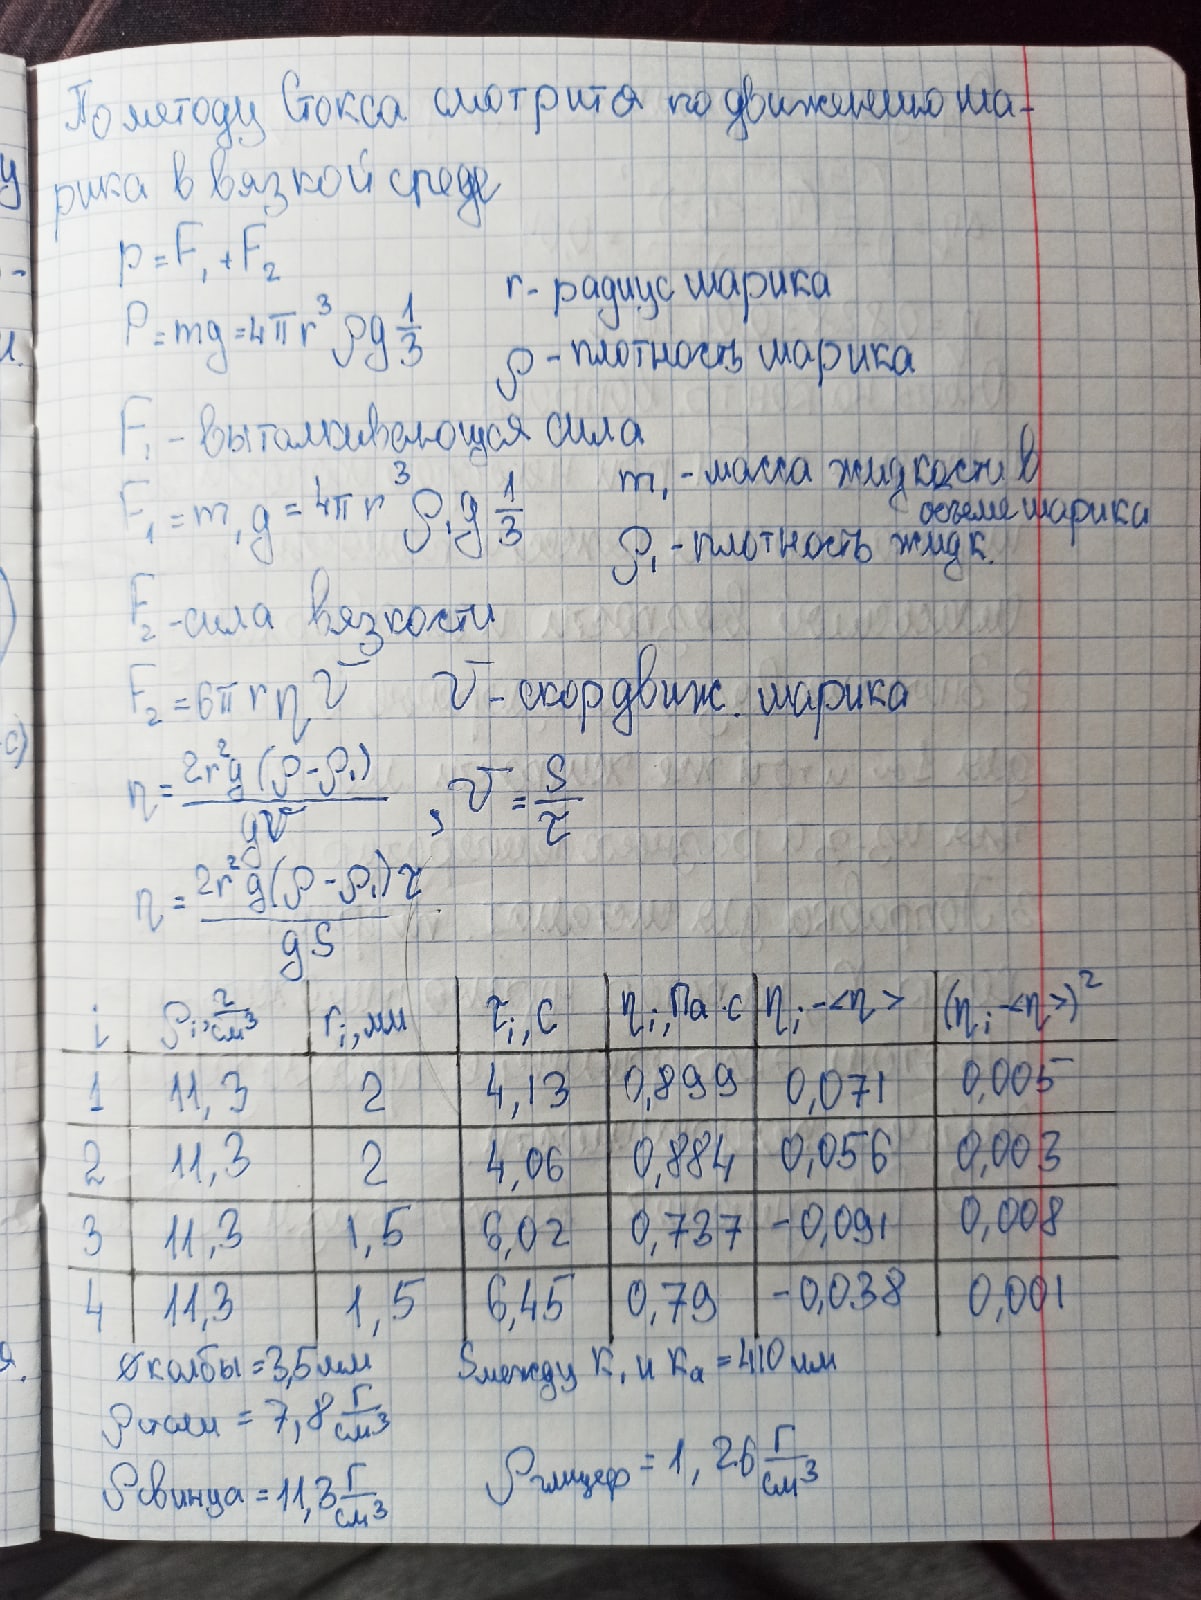 По методу Стокса смотрится по движению ша-
рика в вязкой среде
P = F₁ + F₂
r - радиус шарика
P = mg = 4πr³ρg 1/3
ρ - плотность шарика
F₁ - выталкивающая сила
m₁ - масса жидкости в
объеме шарика
F₁ = m₁g = 4πr³ρ₁g 1/3
ρ₁ - плотность жидк.
F₂ - сила вязкости
F₂ = 6πrηV V - скор движ. шарика
η = 2r²g(ρ-ρ₁)/9V , V = S/τ
η = 2r²g(ρ-ρ₁)τ/9S
i ρi, г/см³ ri, мм τi, с ηi, Па·с ηi-<η> (ηi-<η>)²
1 11,3 2 4,13 0,899 0,071 0,005
2 11,3 2 4,06 0,884 0,056 0,003
3 11,3 1,5 6,02 0,737 -0,091 0,008
4 11,3 1,5 6,45 0,79 -0,038 0,001
⌀ колбы = 3,5 мм S между К₁ и К₂ = 410 мм
ρ стали = 7,8 г/см³
ρ глицер = 1,26 г/см³
ρ свинца = 11,3 г/см³